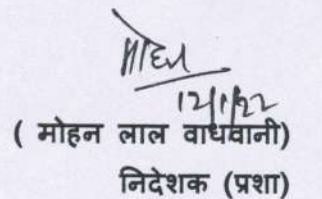 मोहन
12/1/22
( मोहन लाल वाधवानी)
निदेशक (प्रशा)